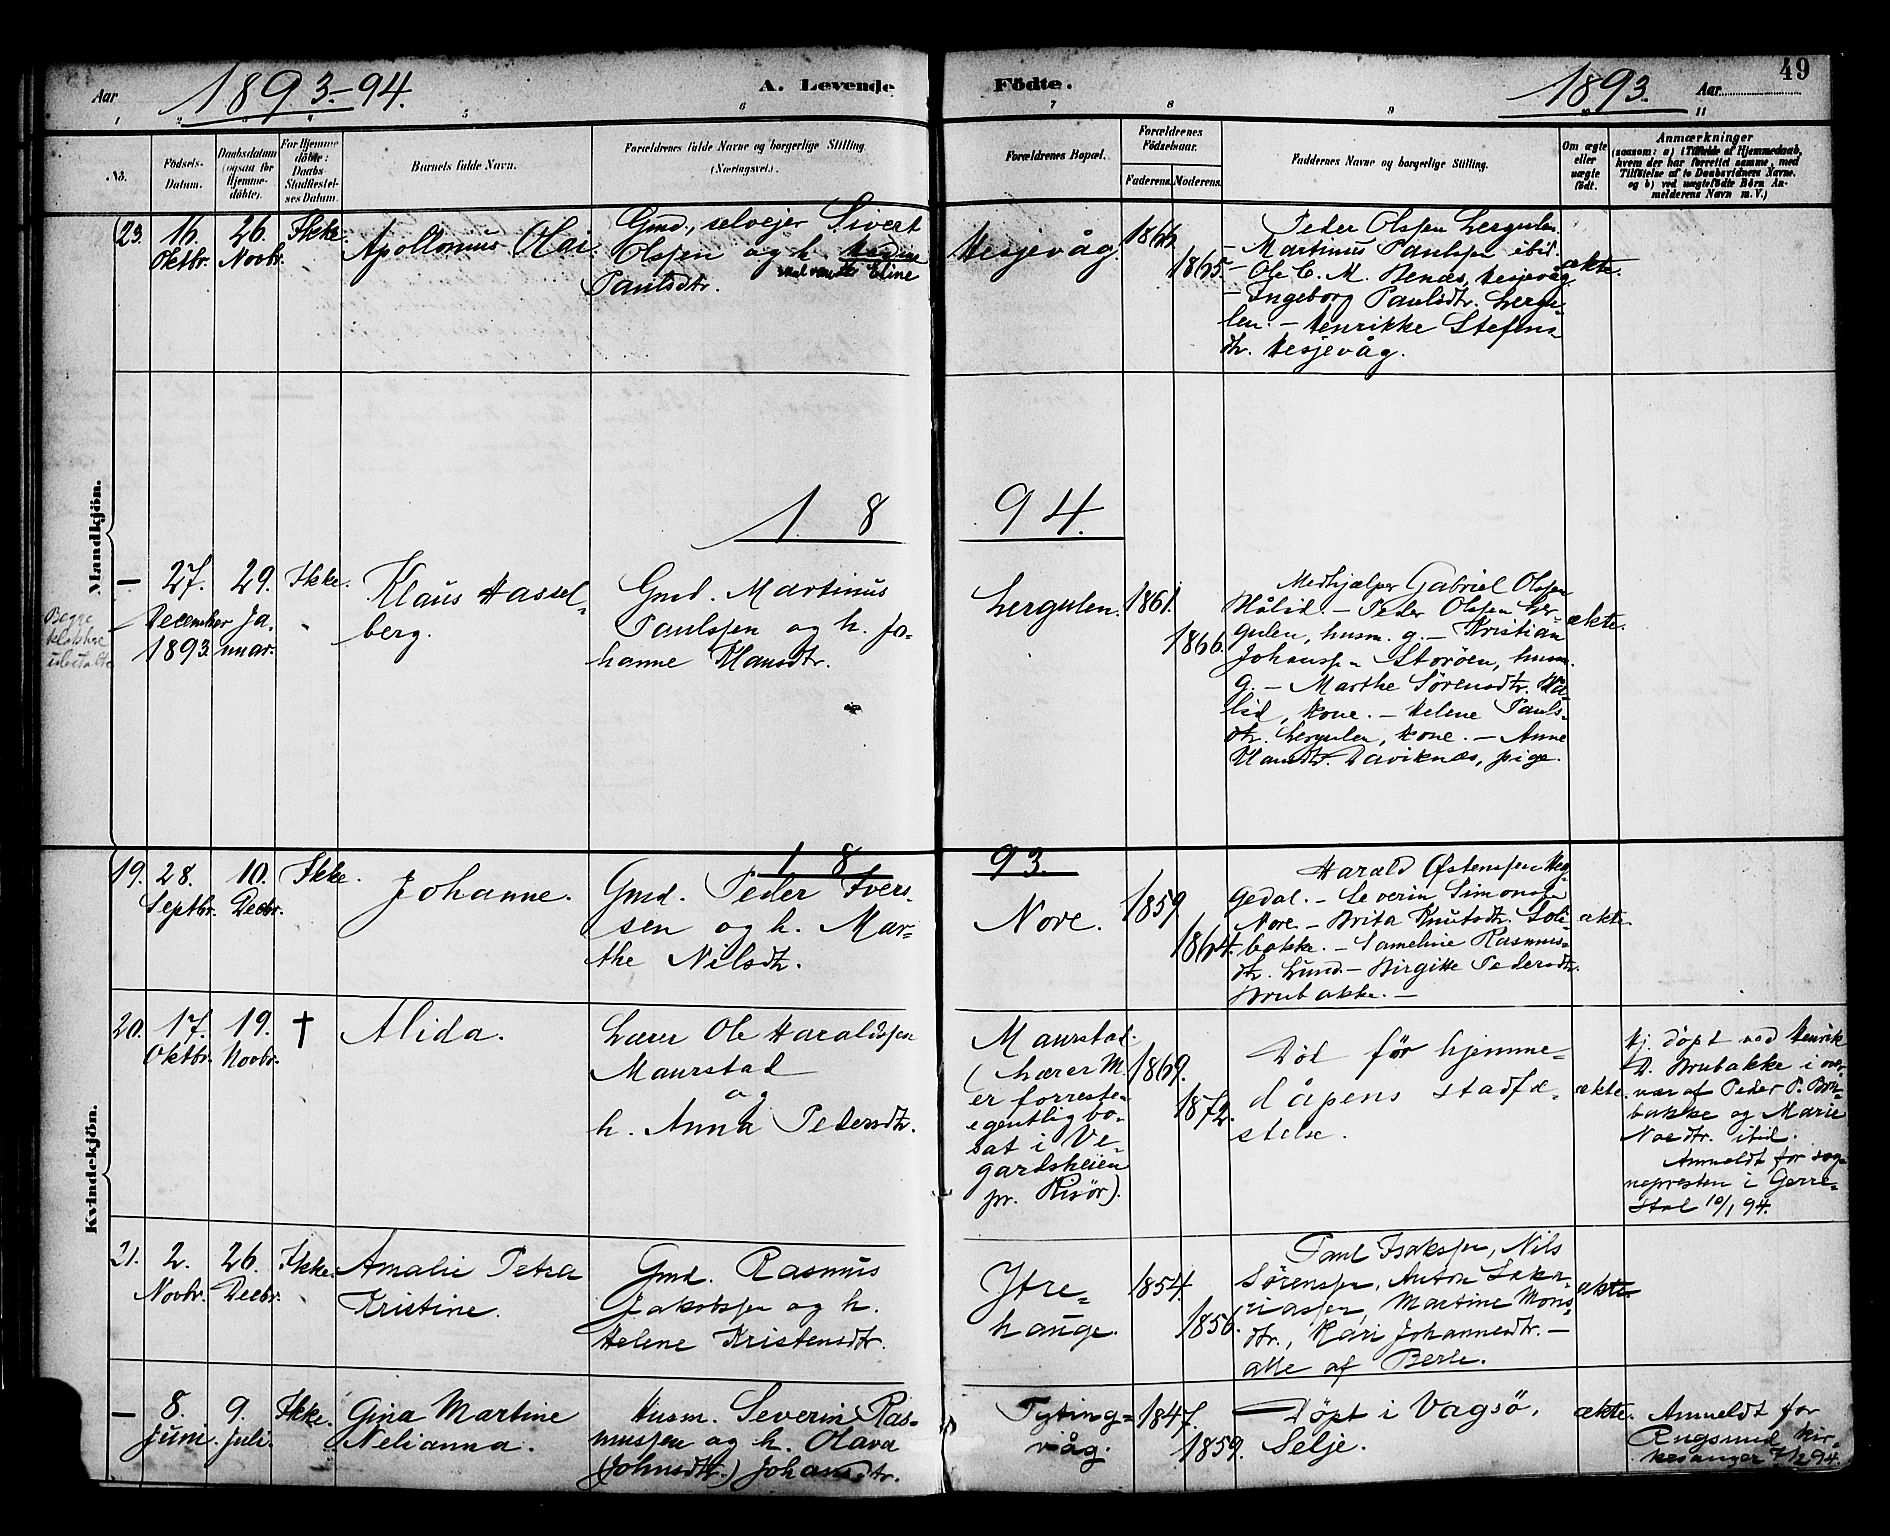 49
Aar
1893-94.
A. Levende
Födte.
1893.
Aar
1
2
3
4
5
6
7
8
9
10
11
No.
Födsels-
Datum.
Daabsdatum
(ogsaa for
Hjemme-
döbte).
For Hjemme
döbte:
Daabs-
Stadfæstel-
ses Datum.
Barnets fulde Navn.
Forældrenes fulde Navne og borgerlige Stilling
(Næringsvei).
Forældrenes Bopæl.
Forældrenes
Födselsaar.
Faderens.
Moderens.
Faddernes Navne og borgerlige Stilling.
Om ægte
eller
uægte
födt.
Anmærkninger
(saasom: a) i Tilfælde af Hjemmedaab,
hvem der har forrettet samme, med
Tilföielse af to Daabsvidners Navne.
og b) ved uægtefödte Börn An-
melderens Navn m. V.)
Mandkjön.
23.
16.
Oktbr.
26.
Novbr.
Ikke.
Apollonius Olai.
Gmd., selveier Sivert
Olssen og h.
Eline
Paulsdtr.
Hesjevåg.
1866
1865.
Peder Olssen Lergulen
– Martinus Paulssen ibid.
– Ole C. M. Henæs, Hesjevåg
– Ingeborg Paulsdtr. Lergu-
len. – Henrikke Stefens-
dtr. Hesjevåg.
ækte.
18
94.
–
27.
December
1893.
29.
Ja-
nuar.
Ikke.
Klaus Hassel-
berg.
Gmd. Martinus
Paulssen og h. Jo-
hanne Klausdtr.
Lergulen.
1861.
1866.
Medhjælper Gabriel Olssen
Hålid. – Peder Olssen Ler-
gulen, husm. g. – Kristian
Johanssen Storöen, husm.
g. – Marthe Sörensdtr. Hå-
lid, kone. – Helene Pauls-
dtr. Lergulen, kone. – Anne
Klausdtr. Daviknes, pige.
ækte.
Kvindekjön.
18
93.
19.
28.
Septbr.
10.
Decbr.
Ikke.
Johanne.
Gmd. Peder Ivers-
sen og h. Mar-
the Nilsdtr.
Nore.
1859
1864.
Harald Østenssen Heg-
gedal. – Severin Simonss.
Nore – Brita Knutsdtr. Soli-
bakke. – Sameline Rasmus-
dtr. Lund. – Birgitte Pedersdtr.
Brubakke. –
ækte.
20.
17.
Oktbr.
19.
Novbr.
†
Alida.
Lærer Ole Haraldssen
Maurstad
og
h. Anna Pedersdtr.
Maurstad.
(Lærer M.
er forresten
egentlig bo-
sat i Ve-
gardsheien
pr. Risör).
1869.
1872.
Död för hjemme-
dåpens stadfæ-
stelse.
ækte.
Hj. döpt ved Henrik
D. Brubakke i over-
vær af Peder P. Bru-
bakke og Marie
Noedtr. ibid.
Anmeldt for sog-
nepresten i Gerre-
stad 10/1 94.
21.
2.
Novbr.
26.
Decbr.
Ikke.
Amalie Petra
Kristine.
Gmd. Rasmus
Jakobssen og h.
Helene Kristensdtr.
Ytre-
hauge.
1854.
1856.
Paul Isakssen, Nils
Sörenssen, Anton Sakar-
iassen, Martine Mons-
dtr., Kari Johannesdtr. –
alle af Berle.
ækte
–
8.
Juni.
9.
Juli.
Ikke.
Gina Martine
Nelianna.
Husm. Severin Ras-
mussen og h. Olava
(Johnsdtr.) Johansdtr.
Tyting-
våg.
1847.
1859.
Döpt i Vagsö,
Selje.
ækte.
Anmeldt for
Rugsund kir-